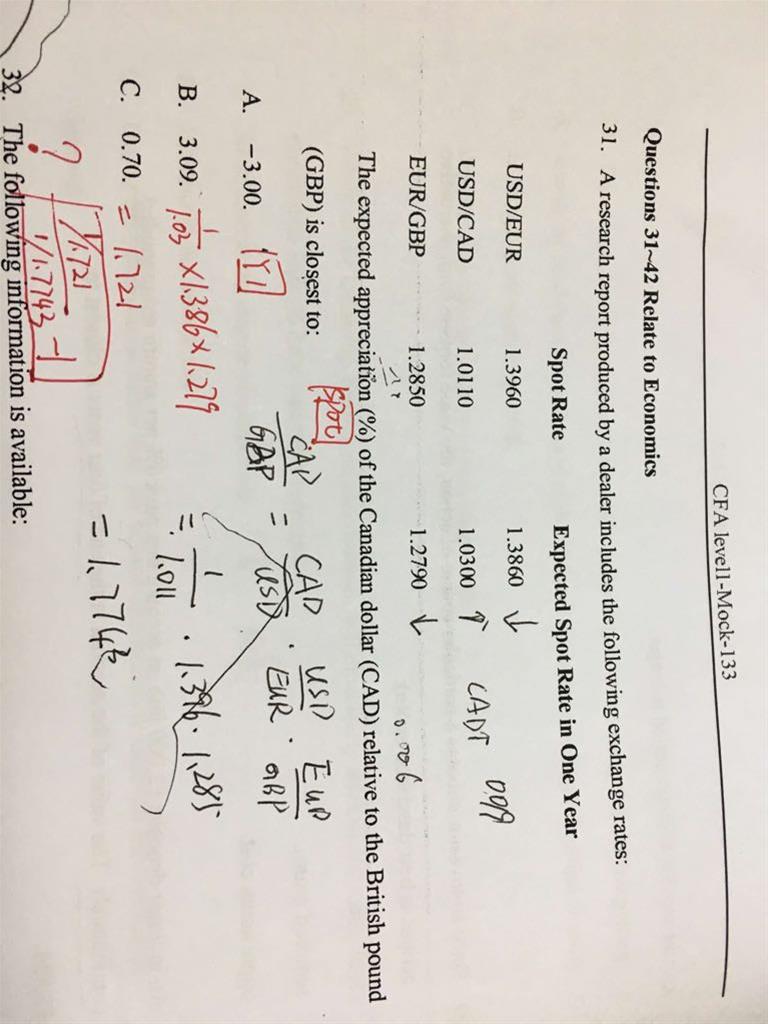 CFA level1-Mock-133
Questions 31~42 Relate to Economics
31. A research report produced by a dealer includes the following exchange rates:
Spot Rate Expected Spot Rate in One Year
USD/EUR 1.3960 1.3860 ↓
USD/CAD 1.0110 1.0300 ↑ CAD↑
EUR/GBP 1.2850 1.2790 ↓ 0.006
The expected appreciation (%) of the Canadian dollar (CAD) relative to the British pound
(GBP) is closest to:
spot
CAD/GBP = CAD/USD · USD/EUR · EUR/GBP
A. −3.00. 1Y
B. 3.09. 1/1.03 ×1.386×1.279 = 1/1.011 · 1.396 · 1.285
C. 0.70. = 1.721 = 1.7743
? 1/1.721 / 1/1.7743 -1
32. The following information is available: